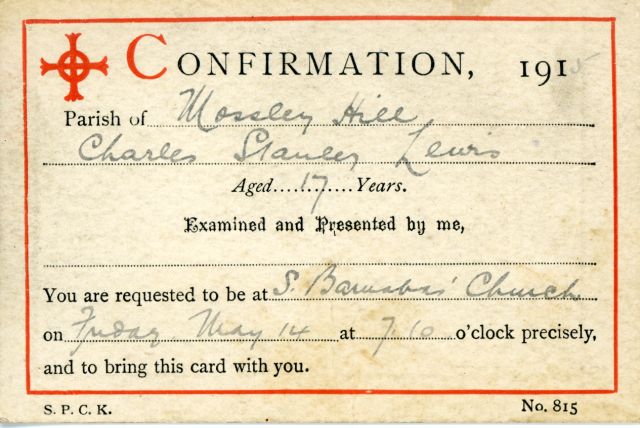 CONFIRMATION, 1915
Parish of Mossley Hill
Charles Stanley Lewis
Aged....17....Years.
Examined and Presented by me,
You are requested to be at S. Barnabas' Church
on Friday May 14 at 7.10 o'clock precisely,
and to bring this card with you.
S. P. C. K. No. 815